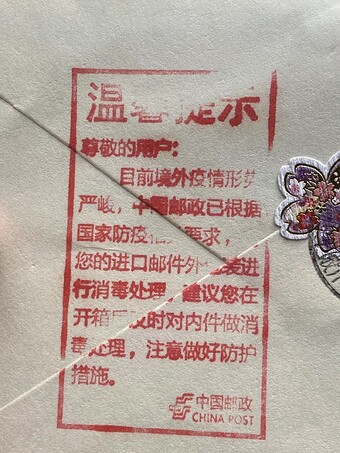 温馨提示
尊敬的用户：
目前境外疫情形势
严峻，中国邮政已根据
国家防疫相关要求，
您的进口邮件外包装进
行消毒处理，建议您在
开箱后及时对内件做消
毒处理，注意做好防护
措施。
中国邮政
CHINA POST